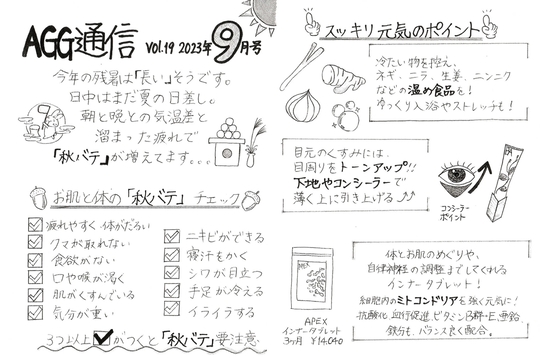 AGG通信 VOL.19 2023年9月号
今年の残暑は「長い」そうです。
日中はまだ夏の日差し。
朝と晩との気温差と
溜まった疲れで
「秋バテ」が増えてます...
お肌と体の「秋バテ」チェック
疲れやすく体がだるい
クマが取れない
食欲がない
口や喉が渇く
肌がくすんでいる
気分が重い
ニキビができる
寝汗をかく
シワが目立つ
手足が冷える
イライラする
3つ以上✓がつくと「秋バテ」要注意
スッキリ元気のポイント
冷たい物を控え、
ネギ、ニラ、生姜、ニンニク
などの温め食品を!
ゆっくり入浴やストレッチも!
目元のくすみには、
目周りをトーンアップ!!
下地やコンシーラーで
薄く上に引き上げる
コンシーラー
ポイント
体とお肌のめぐりや、
自律神経の調整までしてくれる
インナータブレット!
細胞内のミトコンドリアを強く元気に!
抗酸化、血行促進、ビタミンB群・E、亜鉛、
鉄分も、バランス良く配合。
APEX
インナータブレット
3ヶ月 ¥14,040